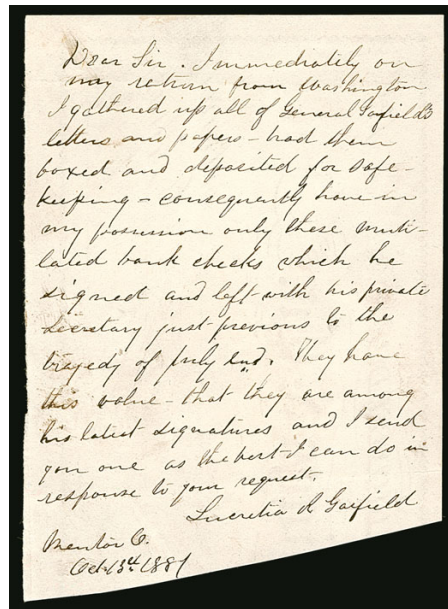 Dear Sir. Immediately on
my return from Washington
I gathered up all of General Garfield's
letters and papers - had them
boxed and deposited for safe-
keeping - consequently have in
my possession only these muti-
lated bank checks which he
signed and left with his private
secretary just previous to the
tragedy of July 2nd. They have
this value - that they are among
his latest signatures and I send
you one as the best I can do in
response to your request.
Lucretia R Garfield
Mentor O.
Oct. 13th 1881